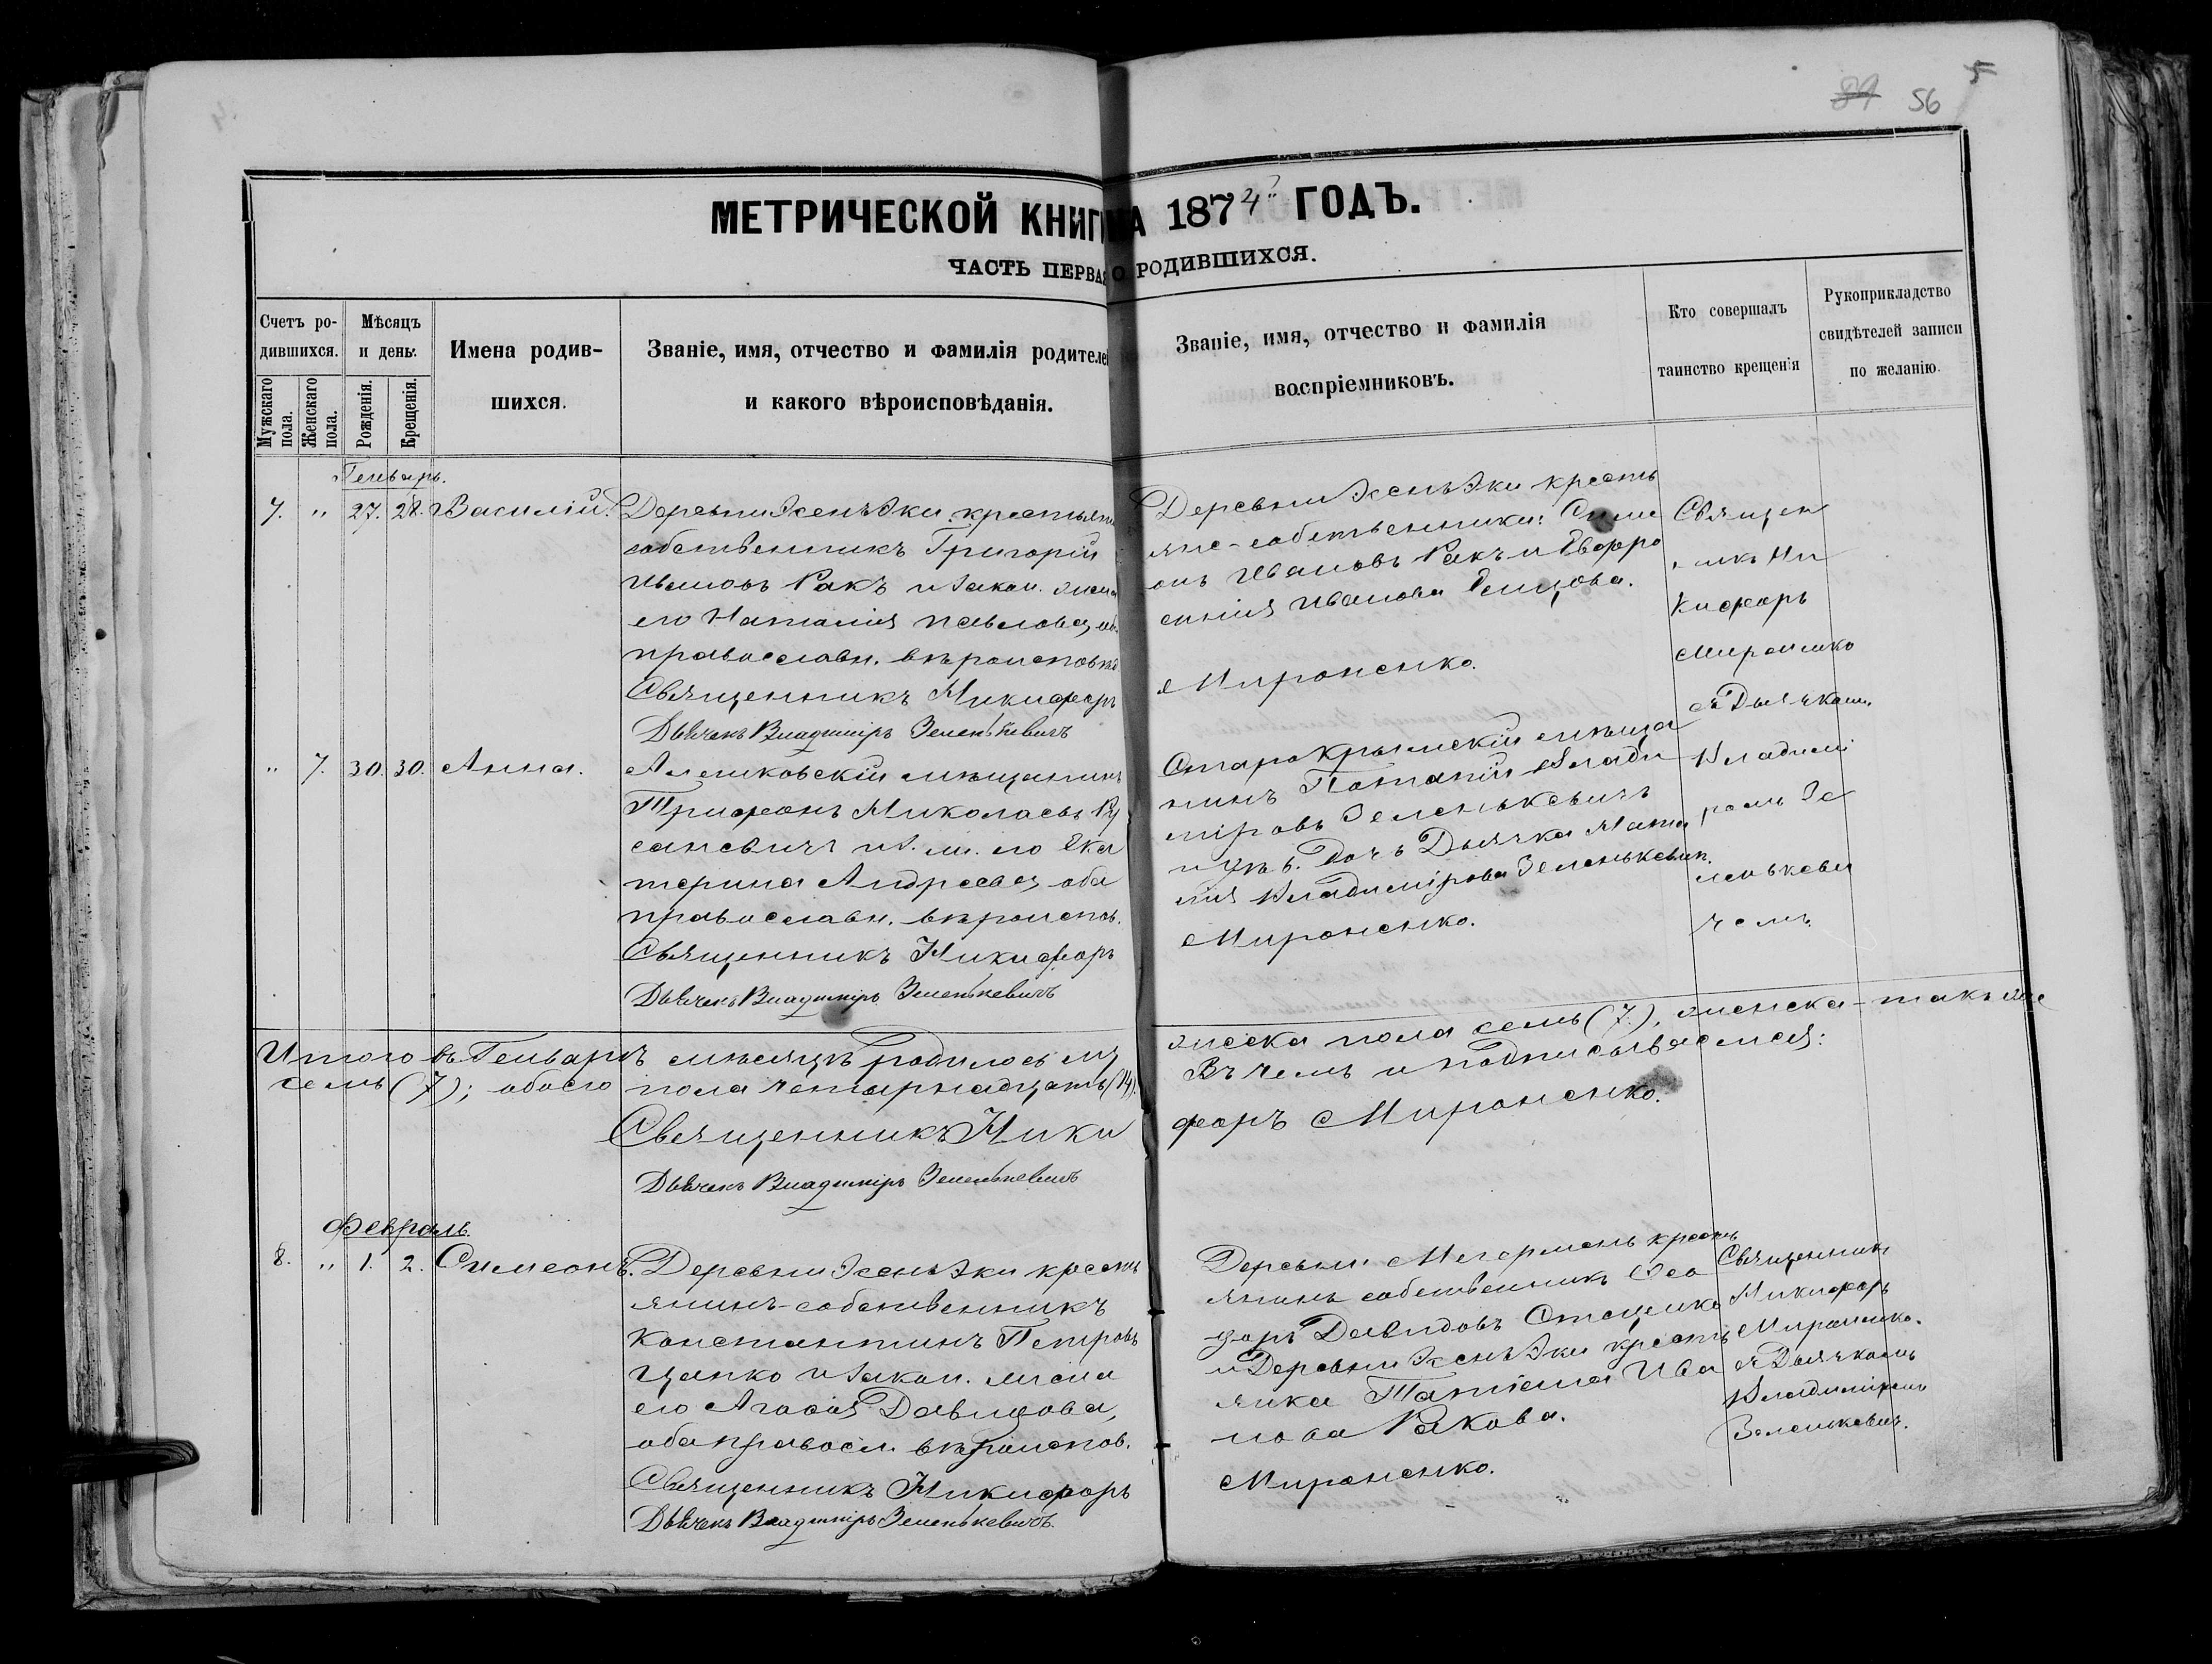 89 56 5
МЕТРИЧЕСКОЙ КНИГ НА 1874 ГОДЪ.
ЧАСТЬ ПЕРВАЯ О РОДИВШИХСЯ.
Счетъ родившихся.
Мужскаго пола.
Женскаго пола.
Мѣсяцъ и день.
Рожденія.
Крещенія.
Имена родив-
шихся.
Званіе, имя, отчество и фамилія родителей
и какого вѣроисповѣданія.
Званіе, имя, отчество и фамилія
воспріемниковъ.
Кто совершалъ
таинство крещенія
Рукоприкладство
свидѣтелей записи
по желанію.
Генварь.
7. " 27. 28. Василій.
Деревни крестьяни
собственникъ Григорій
Ивановъ Ракъ и закон. жена
его Наталія Павлова, об.
православн. вѣроисповѣд
Священникъ Никифоръ
Дьячекъ Владиміръ Зеленькевичъ
Деревни кресть
яне-собственники: Симе
онъ Ивановъ Ракъ и Евфро
синія Иванова
Мироненко.
Священ
никъ Ни
кифоръ
Мироненко
съ Дьячком.
" 7. 30. 30. Анна.
Алешковскій мѣщанинъ
Трифонъ Николаевъ Ру
саневичъ и з. ж. его Ека
терина Андреева, оба
православн. вѣроиспов.
Священникъ Никифоръ
Дьячекъ Владиміръ Зеленькевичъ
Старокрымскій мѣща
нинъ Потапій Влади
міровъ Зеленькевичъ
и дочь Дьячка Ната
лія Владимірова Зеленькевич.
Мироненко.
Владимі
ромъ Зе
ленькеви
чемъ.
Итого въ Генварѣ мѣсяцѣ родилось му
жеска пола семь (7), женска - такъ же
семь (7); обоего пола четырнадцать (14).
Въ чемъ и подписываемся:
Священникъ Ники
форъ Мироненко.
Дьячекъ Владиміръ Зеленькевичъ
Февраль.
8. " 1. 2. Симеонъ.
Деревни кресть
янинъ-собственникъ
Константинъ Петровъ
Цапко и закон. жена
его Агафія Давидова,
оба правосл. вѣроиспов.
Священникъ Никифоръ
Дьячекъ Владиміръ Зеленькевичъ.
Деревни кресть
янинъ собственникъ Ѳео
доръ Давидовъ Стаценко
и Деревни кресть
янка Татіана Ива
нова Ракова.
Мироненко.
Священник
Никифоръ
Мироненко.
съ Дьячкомъ
Владиміромъ
Зеленькевич.